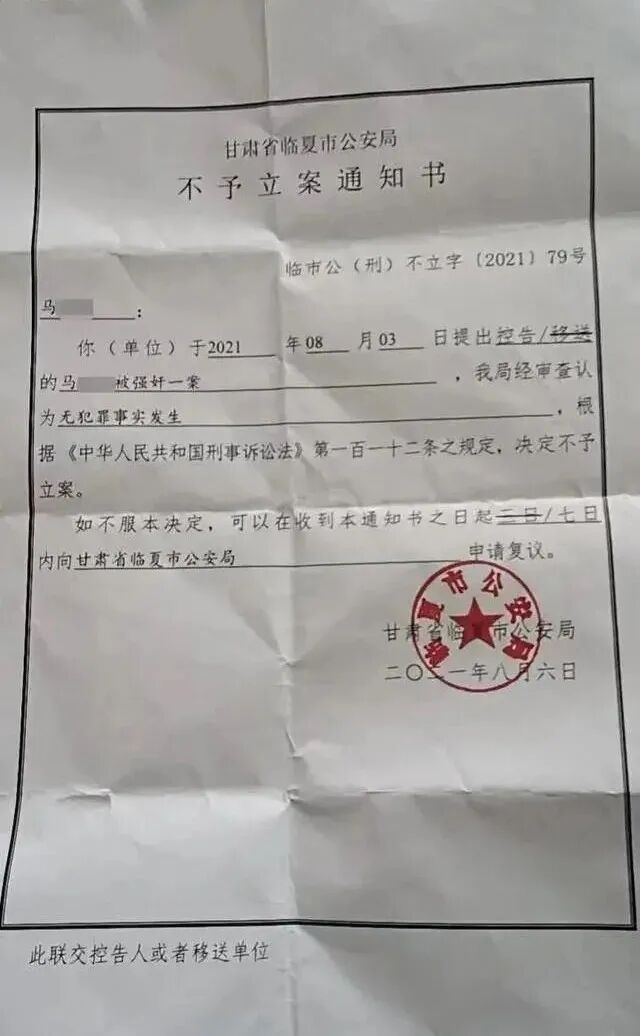 甘肃省临夏市公安局
不予立案通知书
临市公（刑）不立字〔2021〕79号
马：
你（单位）于2021年08月03日提出控告/移送
的马被强奸一案，我局经审查认
为无犯罪事实发生，根
据《中华人民共和国刑事诉讼法》第一百一十二条之规定，决定不予
立案。
如不服本决定，可以在收到本通知书之日起三日/七日
内向甘肃省临夏市公安局申请复议。
甘肃省临夏市公安局
二〇二一年八月六日
临夏市公安局
此联交控告人或者移送单位